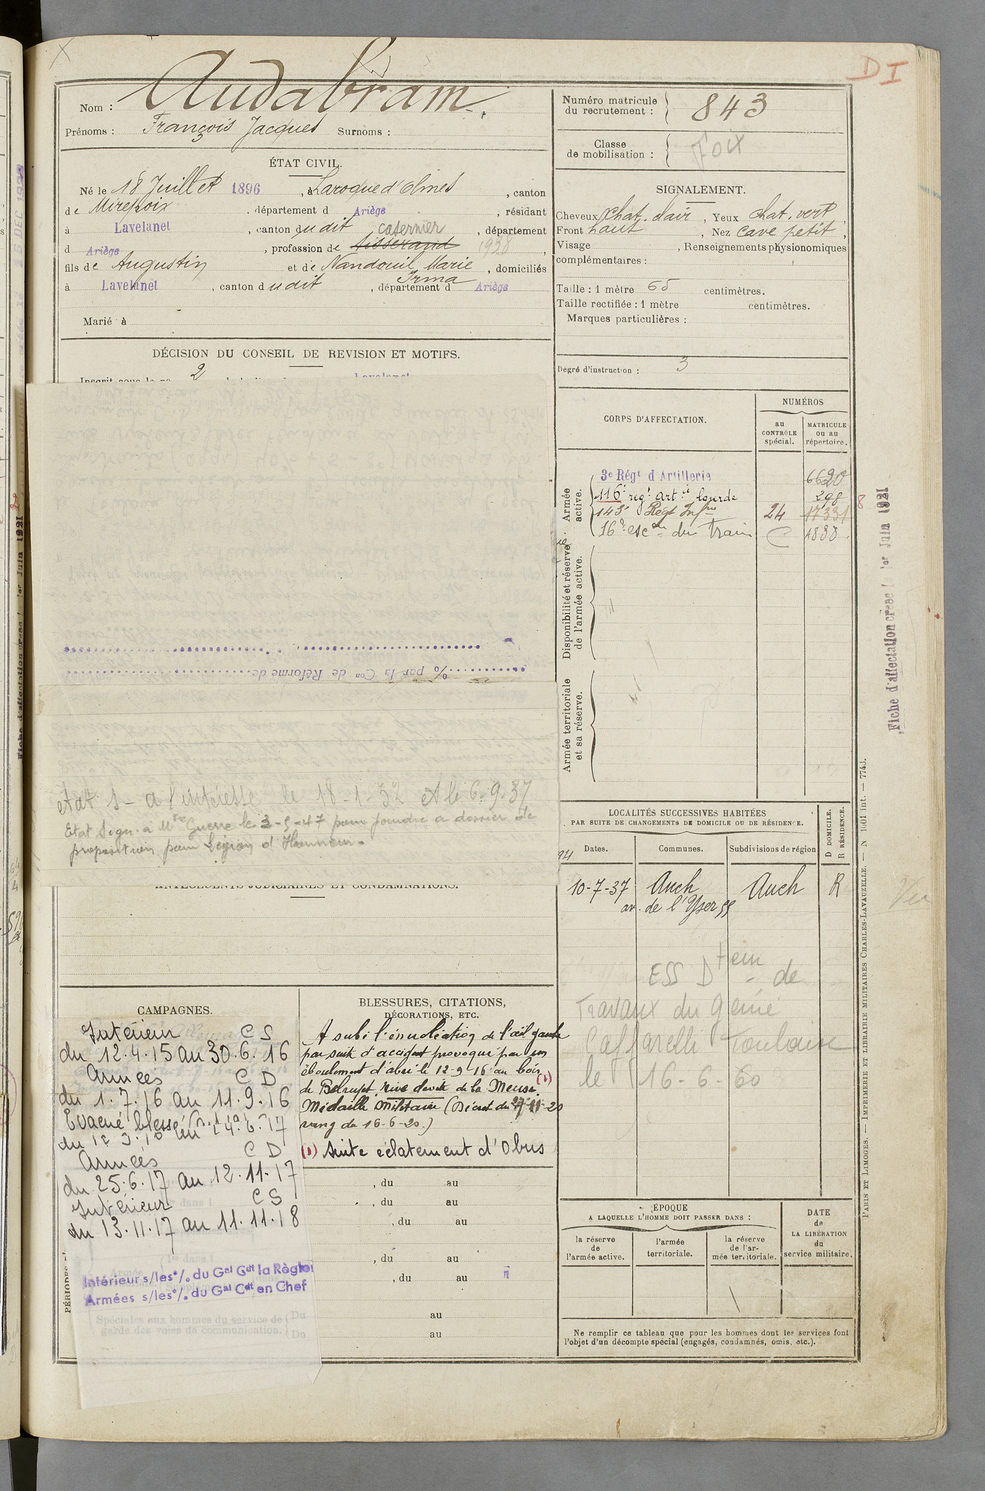 D I
Nom : Audabram.
Prénoms : François Jacques Surnoms :
ÉTAT CIVIL.
Né le 18 Juillet 1896, à Laroque d'Olmes, canton
de Mirepoix, département d Ariège, résidant
à Lavelanet, canton dudit casernier, département
d Ariège, profession de tisserand 1928,
fils de Augustin et de Nandouil Marie, domiciliés
Irma
à Lavelanet, canton dudit, département d Ariège
Marié à
DÉCISION DU CONSEIL DE REVISION ET MOTIFS.
2
Lavelanet
% par la Con de Réforme de
Etat S- a l'intéressé le 18-1-32 et le 6-9-37
Etat Sign. a Mtre Guerre le 3-9-47 pour joindre a dossier de
proposition pour Légion d'Honneur.
ANTÉCÉDENTS JUDICIAIRES ET CONDAMNATIONS.
CAMPAGNES.
Intérieur C S
du 12.4.15 au 30.6.16
Armées C D
du 1.7.16 au 11.9.16
Evacué blessé
Armées C D
du 25.6.17 au 12.11.17
Intérieur C S
du 13.11.17 au 11.11.18
Intérieur s/les °/. du Gal Gdt la Région
Armées s/les °/. du Gal Cdt en Chef
Spéciales aux hommes du service de
garde des voies de communication.
Du
Do
BLESSURES, CITATIONS,
DÉCORATIONS, ETC.
A subi l'énucléation de l'œil gauche
par suite d'accident provoqué par un
éboulement d'abri le 12-9-16 au bois
de Belrupt, rive droite de la Meuse (1)
Médaille militaire (Décret du 27-11-20
rang du 16-6-20.)
(1) Suite éclatement d'Obus
, du au
, du au
, du au
, du au
, du au
au
au
Numéro matricule
du recrutement : 843
Classe
de mobilisation : Foix
SIGNALEMENT.
Cheveux chat. clair, Yeux chat. vert,
Front haut, Nez cave petit,
Visage , Renseignements physionomiques
complémentaires :
Taille : 1 mètre 65 centimètres.
Taille rectifiée : 1 mètre centimètres.
Marques particulières :
Degré d'instruction : 3
CORPS D'AFFECTATION.
NUMÉROS
au
CONTRÔLE
spécial.
MATRICULE
ou au
répertoire.
Armée
active.
3e Régt d'Artillerie 6620
116e régt artie lourde 298
143e Régt Infrie 24 17331
16e escon du train C 1838
Disponibilité et réserve
de l'armée active.
Armée territoriale
et sa réserve.
LOCALITÉS SUCCESSIVES HABITÉES
PAR SUITE DE CHANGEMENTS DE DOMICILE OU DE RÉSIDENCE.
Dates.
Communes.
Subdivisions de région
D DOMICILE.
R RÉSIDENCE.
10-7-37 Auch Auch R
av. de l'Yser 55
ESS Dtein de
Travaux du génie
Caffarelli Toulouse
le 16-6-60
ÉPOQUE
A LAQUELLE L'HOMME DOIT PASSER DANS :
la réserve
de
l'armée active.
l'armée
territoriale.
la réserve
de l'ar-
mée territoriale.
DATE
de
LA LIBÉRATION
du
service militaire.
Ne remplir ce tableau que pour les hommes dont les services font
l'objet d'un décompte spécial (engagés, condamnés, omis, etc.).
Fiche d'affectation créée le 1er Juin 1921
PARIS ET LIMOGES. — IMPRIMERIE ET LIBRAIRIE MILITAIRES CHARLES-LAVAUZELLE.